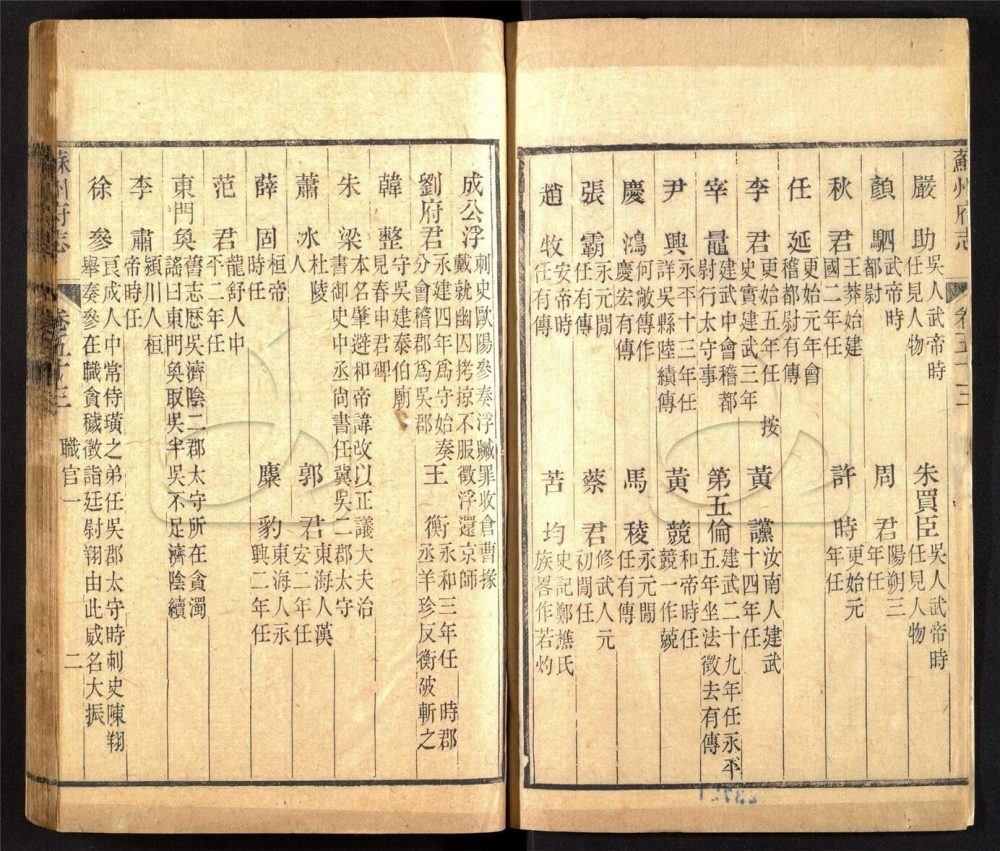 蘇州府志
卷五十三
嚴助 吳人武帝時任見人物
朱買臣 吳人武帝時任見人物
顏駟 武帝時都尉
周君 陽朔三年任
秋君 王莽始建國二年任
許時 更始元年任
任延 更始元年會稽都尉有傳
李君 更始五年任 按史實建武三年
黃讜 汝南人建武十四年任
宰鼂 建武中會稽都尉行太守事
第五倫 建武二十九年任永平五年坐法徵去有傳
尹興 永平十三年任詳吳縣陸續傳
黃兢 和帝時任兢一作
慶鴻 何敞作慶宏有傳
馬稜 永元閒任有傳
張霸 永元閒任有傳
蔡君 修武人元初閒任
趙牧 安帝時任有傳
苦均 史記鄭樵氏族畧作若灼
成公浮 刺史歐陽參奏浮贓罪收倉曹掾戴就幽囚拷掠不服徵浮還京師
劉府君 永建四年爲守始奏分會稽郡爲吳郡
王衡 永和三年任 時郡丞羊珍反衡破斬之
韓整 守吳建泰伯廟見春申君碑
朱梁 本名肇避和帝諱改以正議大夫治書御史中丞尙書任冀吳二郡太守
蕭冰 杜陵人
郭君 東海人漢安二年任
薛固 桓帝時任
麋豹 東海人永興二年任
范君 龍舒人中平二年任
東門奐 舊志歷吳濟陰二郡太守所在貪濁謠曰東門奐取吳半吳不足濟陰續
李肅 潁川人桓帝時任
徐參 良成人中常侍璜之弟任吳郡太守時刺史陳翔舉奏參在職貪穢徵詣廷尉翔由此威名大振
蘇州府志
卷五十三
職官一
二